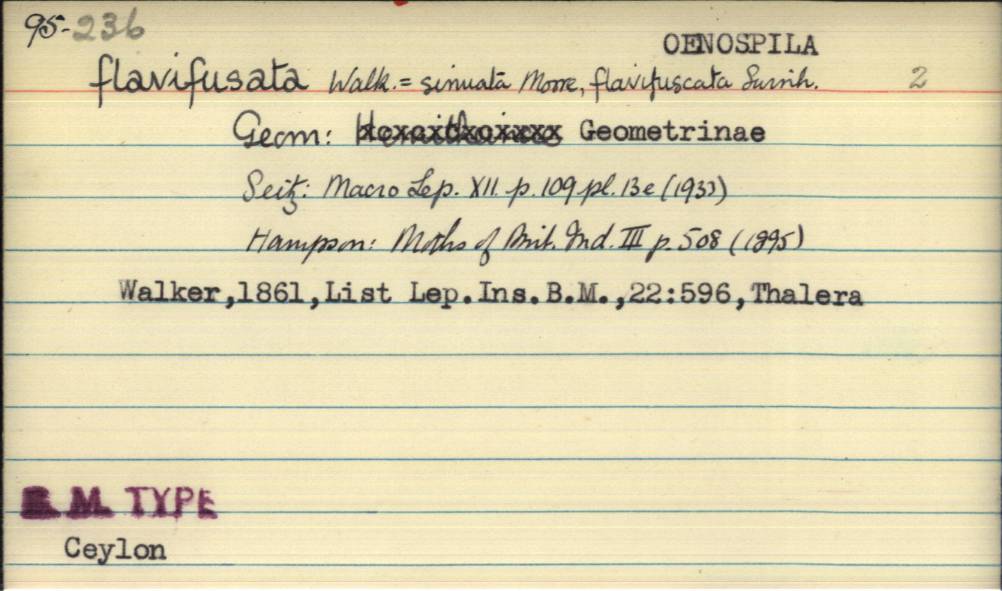 95-236
OENOSPILA
flavifusata Walk. = sinuata Moore, flavifuscata Swinh. 2
Geom: Geometrinae
Seitz: Macro Lep. XII. p. 109 pl. 13e (1933)
Hampson: Moths of Brit. Ind. III p. 508 (1895)
Walker,1861,List Lep.Ins.B.M.,22:596,Thalera
B. M. TYPE
Ceylon